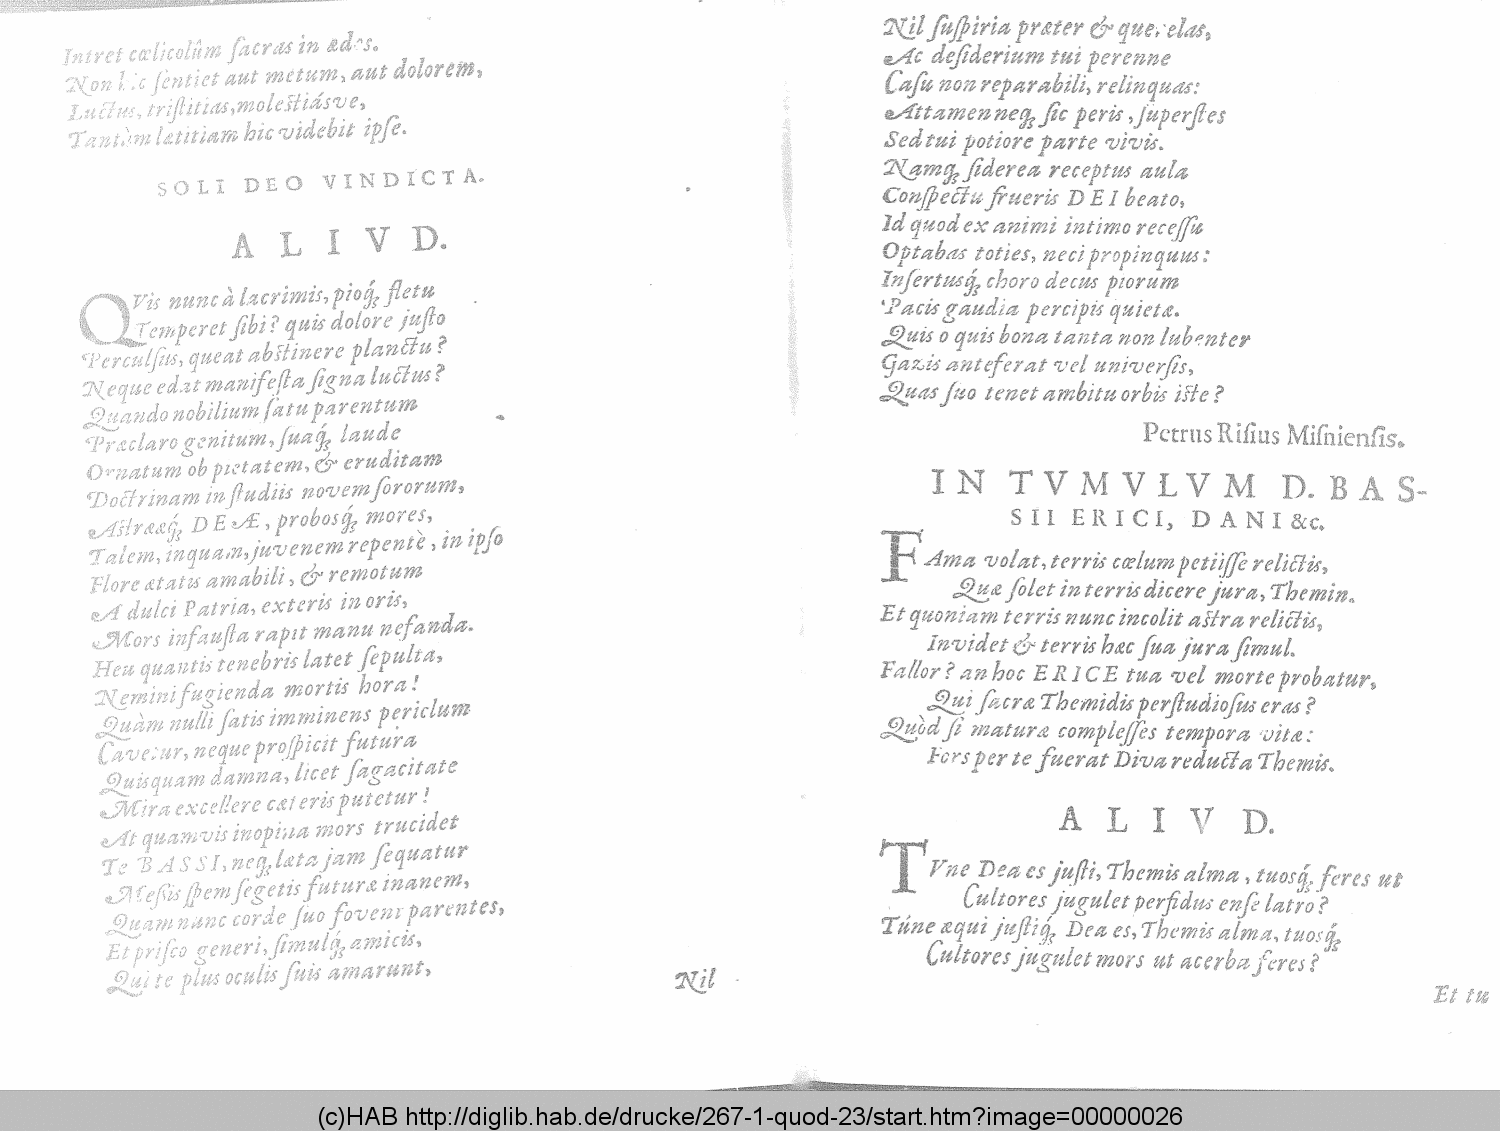 Intret cœlicolûm sacras in ædes.
Non hic sentiet aut metum, aut dolorem,
Luctus, tristitias, molestiásve,
Tantùm lætitiam hic videbit ipse.
SOLI DEO VINDICTA.
ALIVD.
QVis nunc à lacrimis, pioq́; fletu
Temperet sibi? quis dolore justo
Perculsus, queat abstinere planctu?
Neque edat manifesta signa luctus?
Quando nobilium satu parentum
Præclaro genitum, suaq́; laude
Ornatum ob pietatem, & eruditam
Doctrinam in studiis novem sororum,
Astrææq́; DEÆ, probosq́; mores,
Talem, inquam, juvenem repentè, in ipso
Flore ætatis amabili, & remotum
A dulci Patria, exteris in oris,
Mors infausta rapit manu nefanda.
Heu quantis tenebris latet sepulta,
Nemini fugienda mortis hora!
Quàm nulli satis imminens periclum
Cavetur, neque prospicit futura
Quisquam damna, licet sagacitate
Mira excellere cæteris putetur!
At quamvis inopina mors trucidet
Te BASSI, neq; læta jam sequatur
Messis spem segetis futuræ inanem,
Quam nunc corde suo fovent parentes,
Et prisco generi, simulq́; amicis,
Qui te plus oculis suis amarunt,
Nil
Nil suspiria præter & querelas,
Ac desiderium tui perenne
Casu non reparabili, relinquas:
Attamen neq; sic peris, superstes
Sed tui potiore parte vivis.
Namq; siderea receptus aula
Conspectu frueris DEI beato,
Id quod ex animi intimo recessu
Optabas toties, neci propinquus:
Insertusq́; choro decus piorum
Pacis gaudia percipis quietæ.
Quis o quis bona tanta non lubenter
Gazis anteferat vel universis,
Quas suo tenet ambitu orbis iste?
Petrus Risius Misniensis.
IN TVMVLVM D. BAS-
SII ERICI, DANI &c.
FAma volat, terris cœlum petiisse relictis,
Quæ solet in terris dicere jura, Themin.
Et quoniam terris nunc incolit astra relictis,
Invidet & terris hæc sua jura simul.
Fallor? an hoc ERICE tua vel morte probatur,
Qui sacræ Themidis perstudiosus eras?
Quòd si maturæ complesses tempora vitæ:
Fors per te fuerat Diva reducta Themis.
ALIVD.
TVne Dea es justi, Themis alma, tuosq́; feres ut
Cultores jugulet perfidus ense latro?
Túne æqui justiq́; Dea es, Themis alma, tuosq́;
Cultores jugulet mors ut acerba feres?
Et tu
(c)HAB http://diglib.hab.de/drucke/267-1-quod-23/start.htm?image=00000026